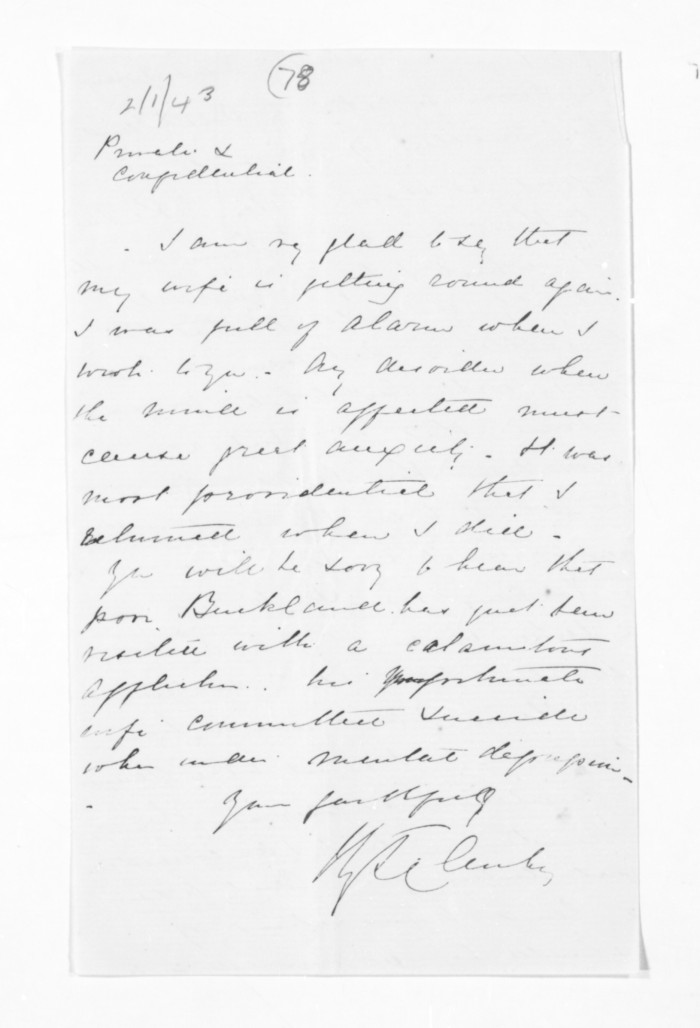 (78
2/1/43
Private &
Confidential.
. I am vy glad to say that
my wife is getting round again.
I was full of alarm when I
wrote to you - Any disorder when
the mind is affected must
cause great anxiety - It was
most providential that I
returned when I did -
You will be sorry to hear that
poor Buckland has just been
visited with a calamitous
affliction. his unfortunate
wife committed suicide
when under mental depression -
Yours faithfully